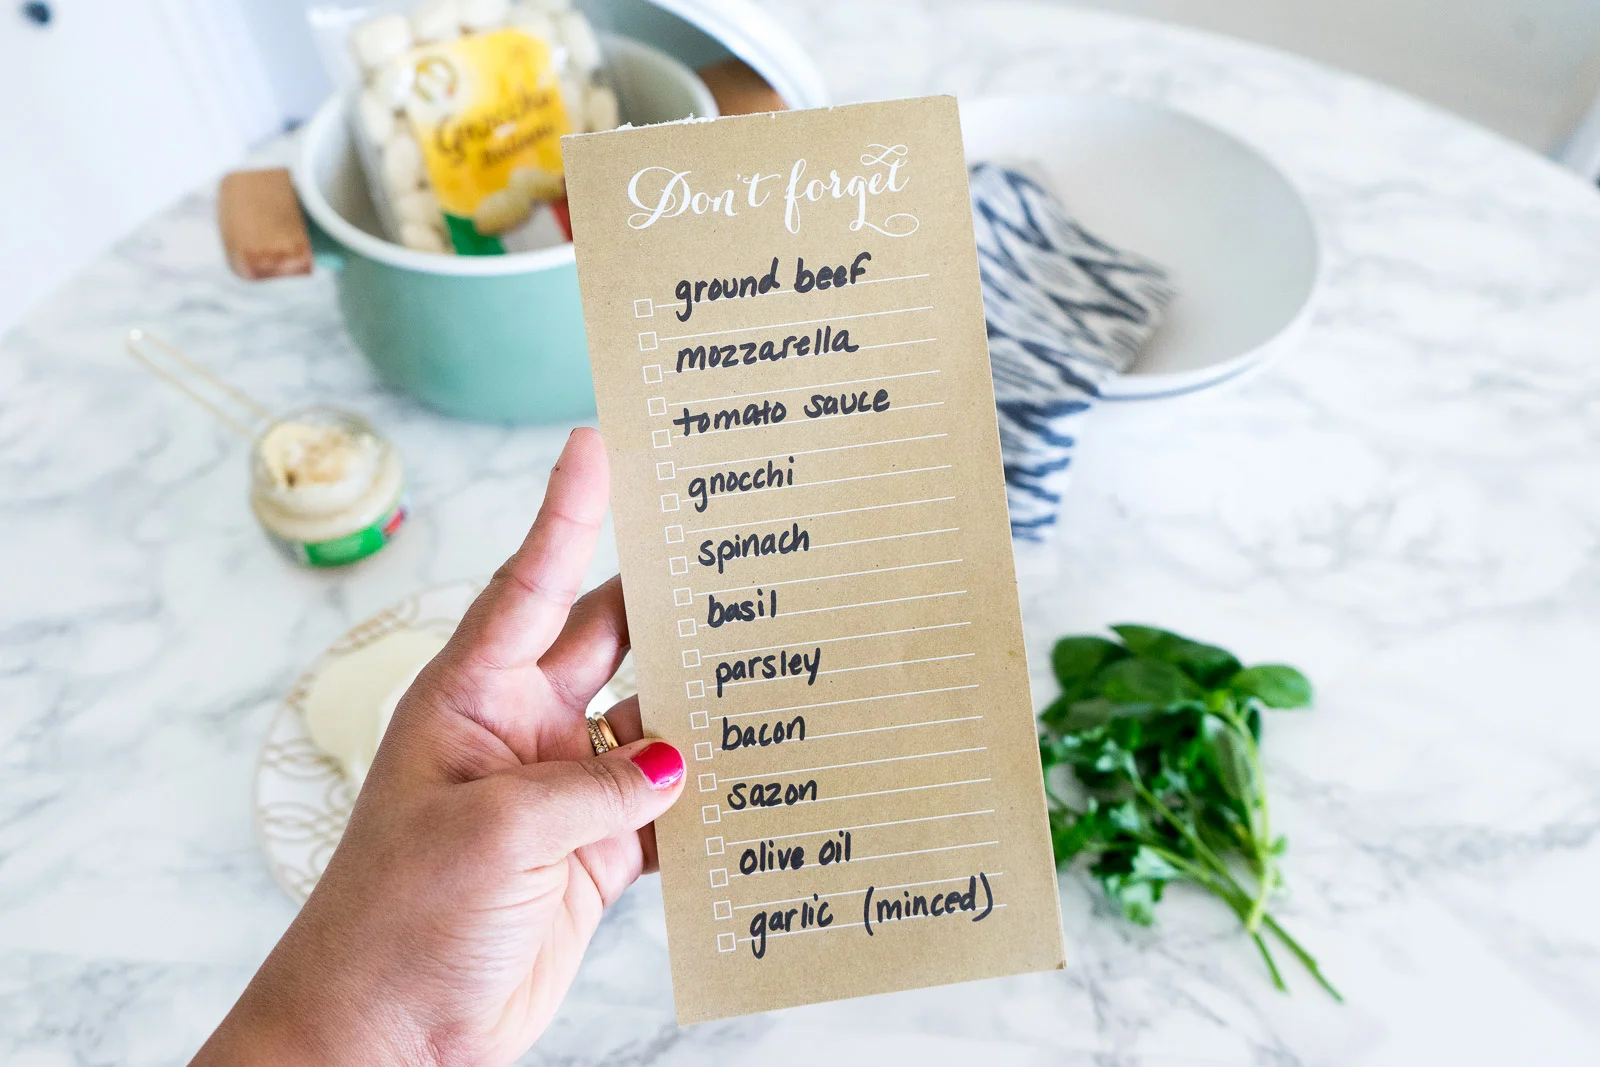 Gnocchi
Don't forget
ground beef
mozzarella
tomato sauce
gnocchi
spinach
basil
parsley
bacon
sazon
olive oil
garlic (minced)